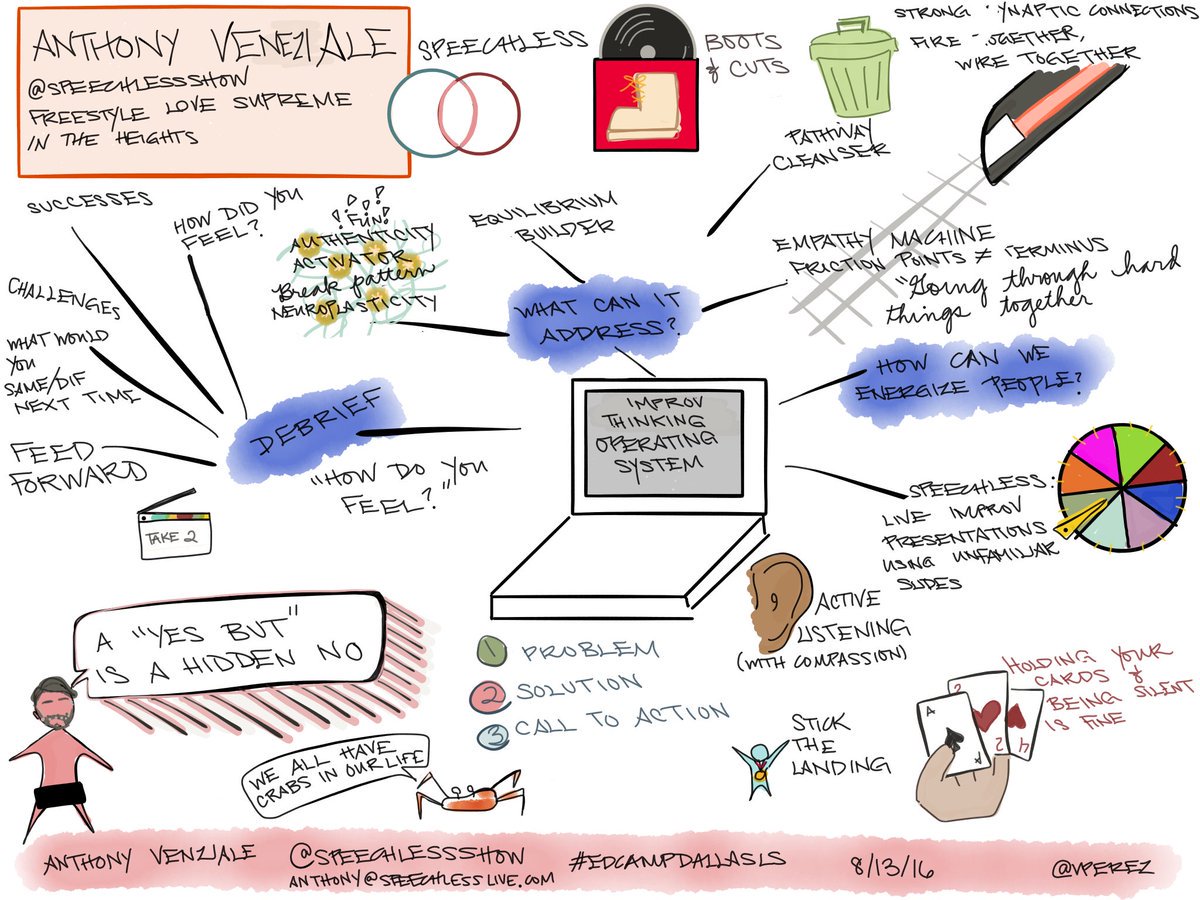 ANTHONY VENEZIALE
@SPEECHLESSSHOW
FREESTYLE LOVE SUPREME
IN THE HEIGHTS
SPEECHLESS
BOOTS
& CUTS
STRONG SYNAPTIC CONNECTIONS
FIRE TOGETHER,
WIRE TOGETHER
PATHWAY
CLEANSER
SUCCESSES
HOW DID YOU
FEEL?
CHALLENGES
WHAT WOULD
YOU
SAME/DIF
NEXT TIME
FEED
FORWARD
TAKE 2
DEBRIEF
"HOW DO YOU
FEEL?"
! ! ? !
FUN!
AUTHENTICITY
ACTIVATOR
Break pattern
NEUROPLASTICITY
EQUILIBRIUM
BUILDER
WHAT CAN IT
ADDRESS?
EMPATHY MACHINE
FRICTION POINTS ≠ TERMINUS
"Going through hard
things together
HOW CAN WE
ENERGIZE PEOPLE?
IMPROV
THINKING
OPERATING
SYSTEM
SPEECHLESS:
LIVE IMPROV
PRESENTATIONS
USING UNFAMILIAR
SLIDES
A "YES BUT"
IS A HIDDEN NO
WE ALL HAVE
CRABS IN OUR LIFE
1 PROBLEM
2 SOLUTION
3 CALL TO ACTION
ACTIVE
LISTENING
(WITH COMPASSION)
STICK
THE
LANDING
HOLDING YOUR
CARDS &
BEING SILENT
IS FINE
A
A
2
2
4
ANTHONY VENZIALE
@SPEECHLESSSHOW
ANTHONY@SPEECHLESSLIVE.COM
#EDCAMPDALLASLS
8/13/16
@VPEREZ